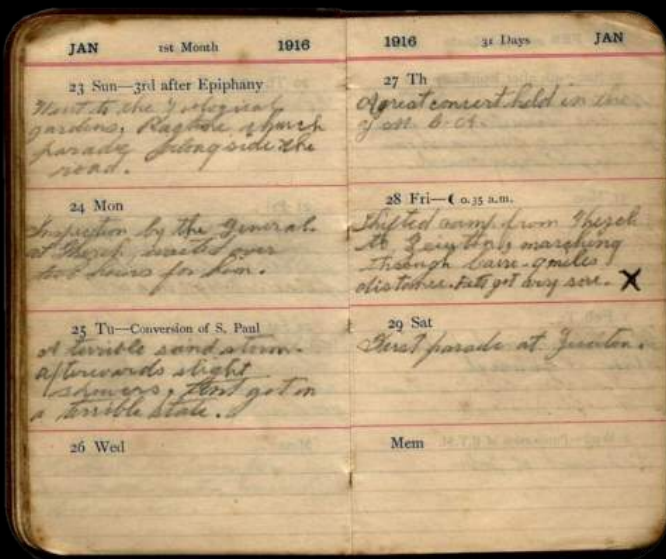 JAN 1st Month 1916
23 Sun—3rd after Epiphany
Went to the Zoological
gardens. Ragtime church
parade alongside the
road.
24 Mon
Inspection by the General.
at waited over
two hours for him.
25 Tu—Conversion of S. Paul
A terrible sand storm.
afterwards slight
showers. Tent got in
a terrible state.
26 Wed
1916 31 Days JAN
27 Th
A great concert held in the
Y M C A.
28 Fri—☾ 0.35 a.m.
Shifted camp from
to Zeiton, marching
through Cairo - 9 miles
distance. Feet got very sore. X
29 Sat
First parade at Zeiton.
Mem